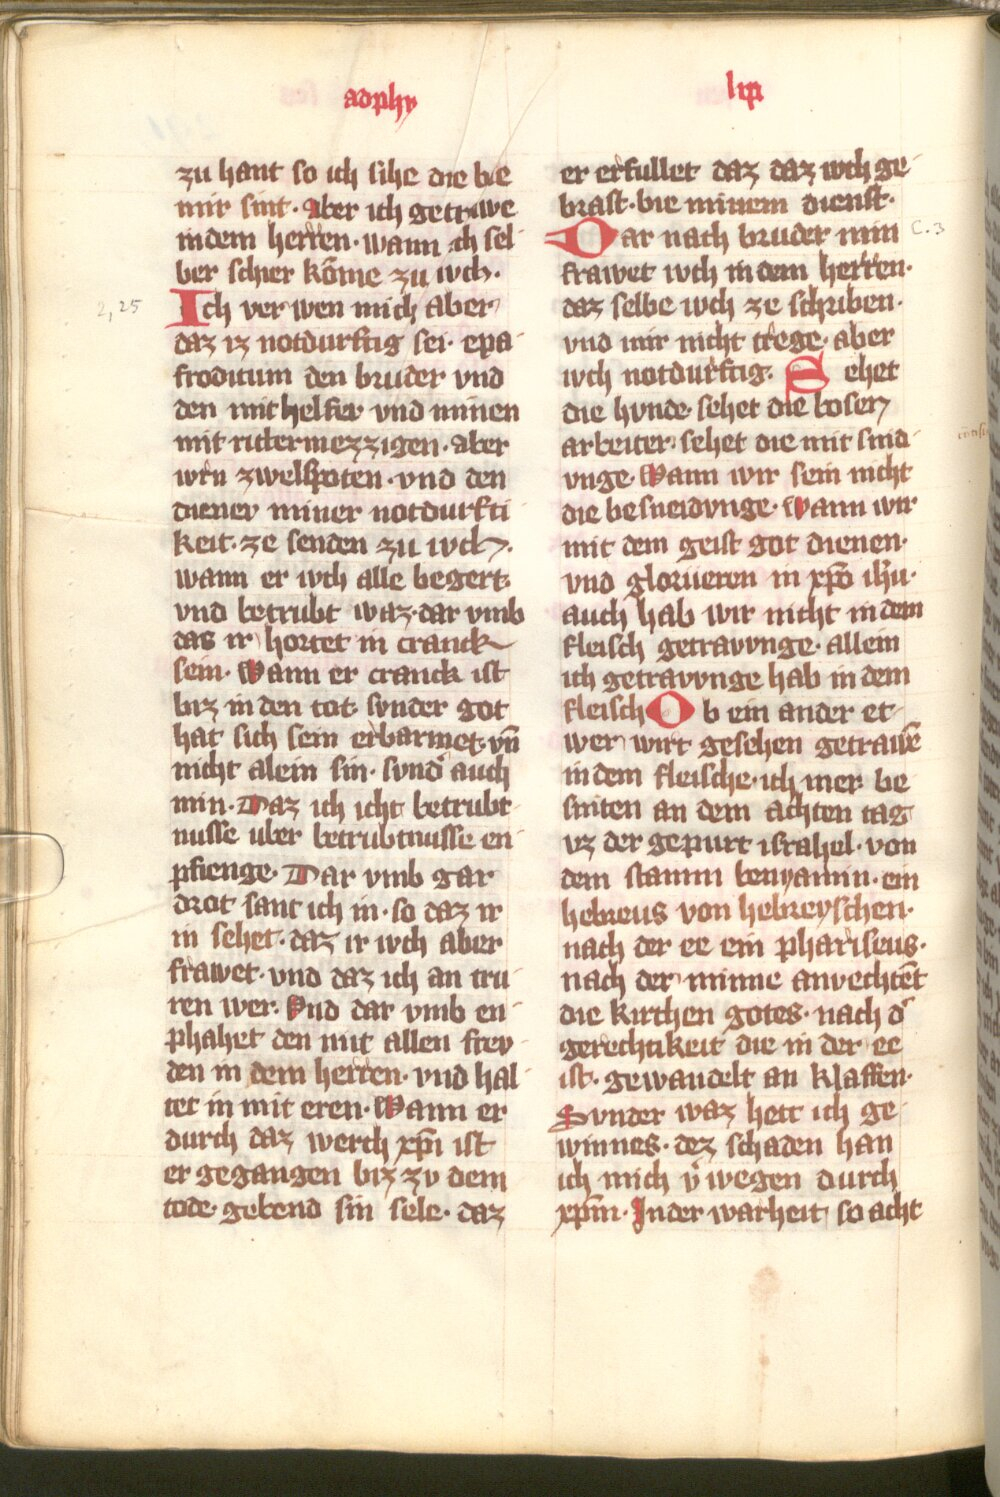 adphy
lip
zu hant so ich sihe die bie
mir sint· Aber ich getrawe
in dem herren· wann ich sel
ber schier kōme zu wch·
2,25
Ich ver wen mich aber
daz iz notdurftig sei· epa
froditum den bruder vnd
den mit helfer vnd minen
mit rittermezzigen· aber
wrn zwelfpoten· vnd den
diener miner notdurfti
keit· ze senden zu wch·
wann er wch alle begert·
vnd betrubt waz· dar vmb
das ir hortet in cranck
sein· Wann er cranck ist
biz in den tot· sunder got
hat sich sein erbarmet· vn̄
nicht alein sin· sund' auch
min· Daz ich icht betrubt
nusse uber betrubtnusse en
pfienge· Dar vmb gar
drot sant ich in· so daz ir
in sehet· daz ir wch aber
frawet· vnd daz ich an tru
ren wer· Vnd dar vmb en
phahet den mit allen frev
den in dem herren· vnd hal
tet in mit eren· Wann er
durch daz werch xp̄i ist
er gegangen biz zv dem
tode· gebend sin sele· daz
er erfullet daz daz wch ge
brast· bie minem dienst·
Dar nach bruder min
C. 3
frawet wch in dem herren·
daz selbe wch ze schriben·
vnd mir nicht trege· aber
wch notdurftig· Sehet
die hvnde· sehet die bosen
arbeiter· sehet die mit snid
vnge· Wann wir sein nicht
die besneidvnge· Wann wir
mit dem geist got dienen·
vnd glorieren in xp̄o ih̄u·
auch hab wir nicht in dem
fleisch getravvnge· allein
ich getravvnge hab in dem
fleisch Ob ein ander et
wer wirt gesehen getrauē
in dem fleische· ich mer· be
sniten an dem achten tag
vz der gepurt israhel· von
dem stamm benyamin· ein
hebreus von hebreyschen·
nach der ee ein phariseus·
nach der minne anvechtēt
die kirchen gotes· nach d'
gerechtikeit die in der ee
ist· gewandelt an klaffen·
Svnder waz hett ich ge
winnes· dez schaden han
ich mich v' wegen durch
xp̄m· In der warheit so acht